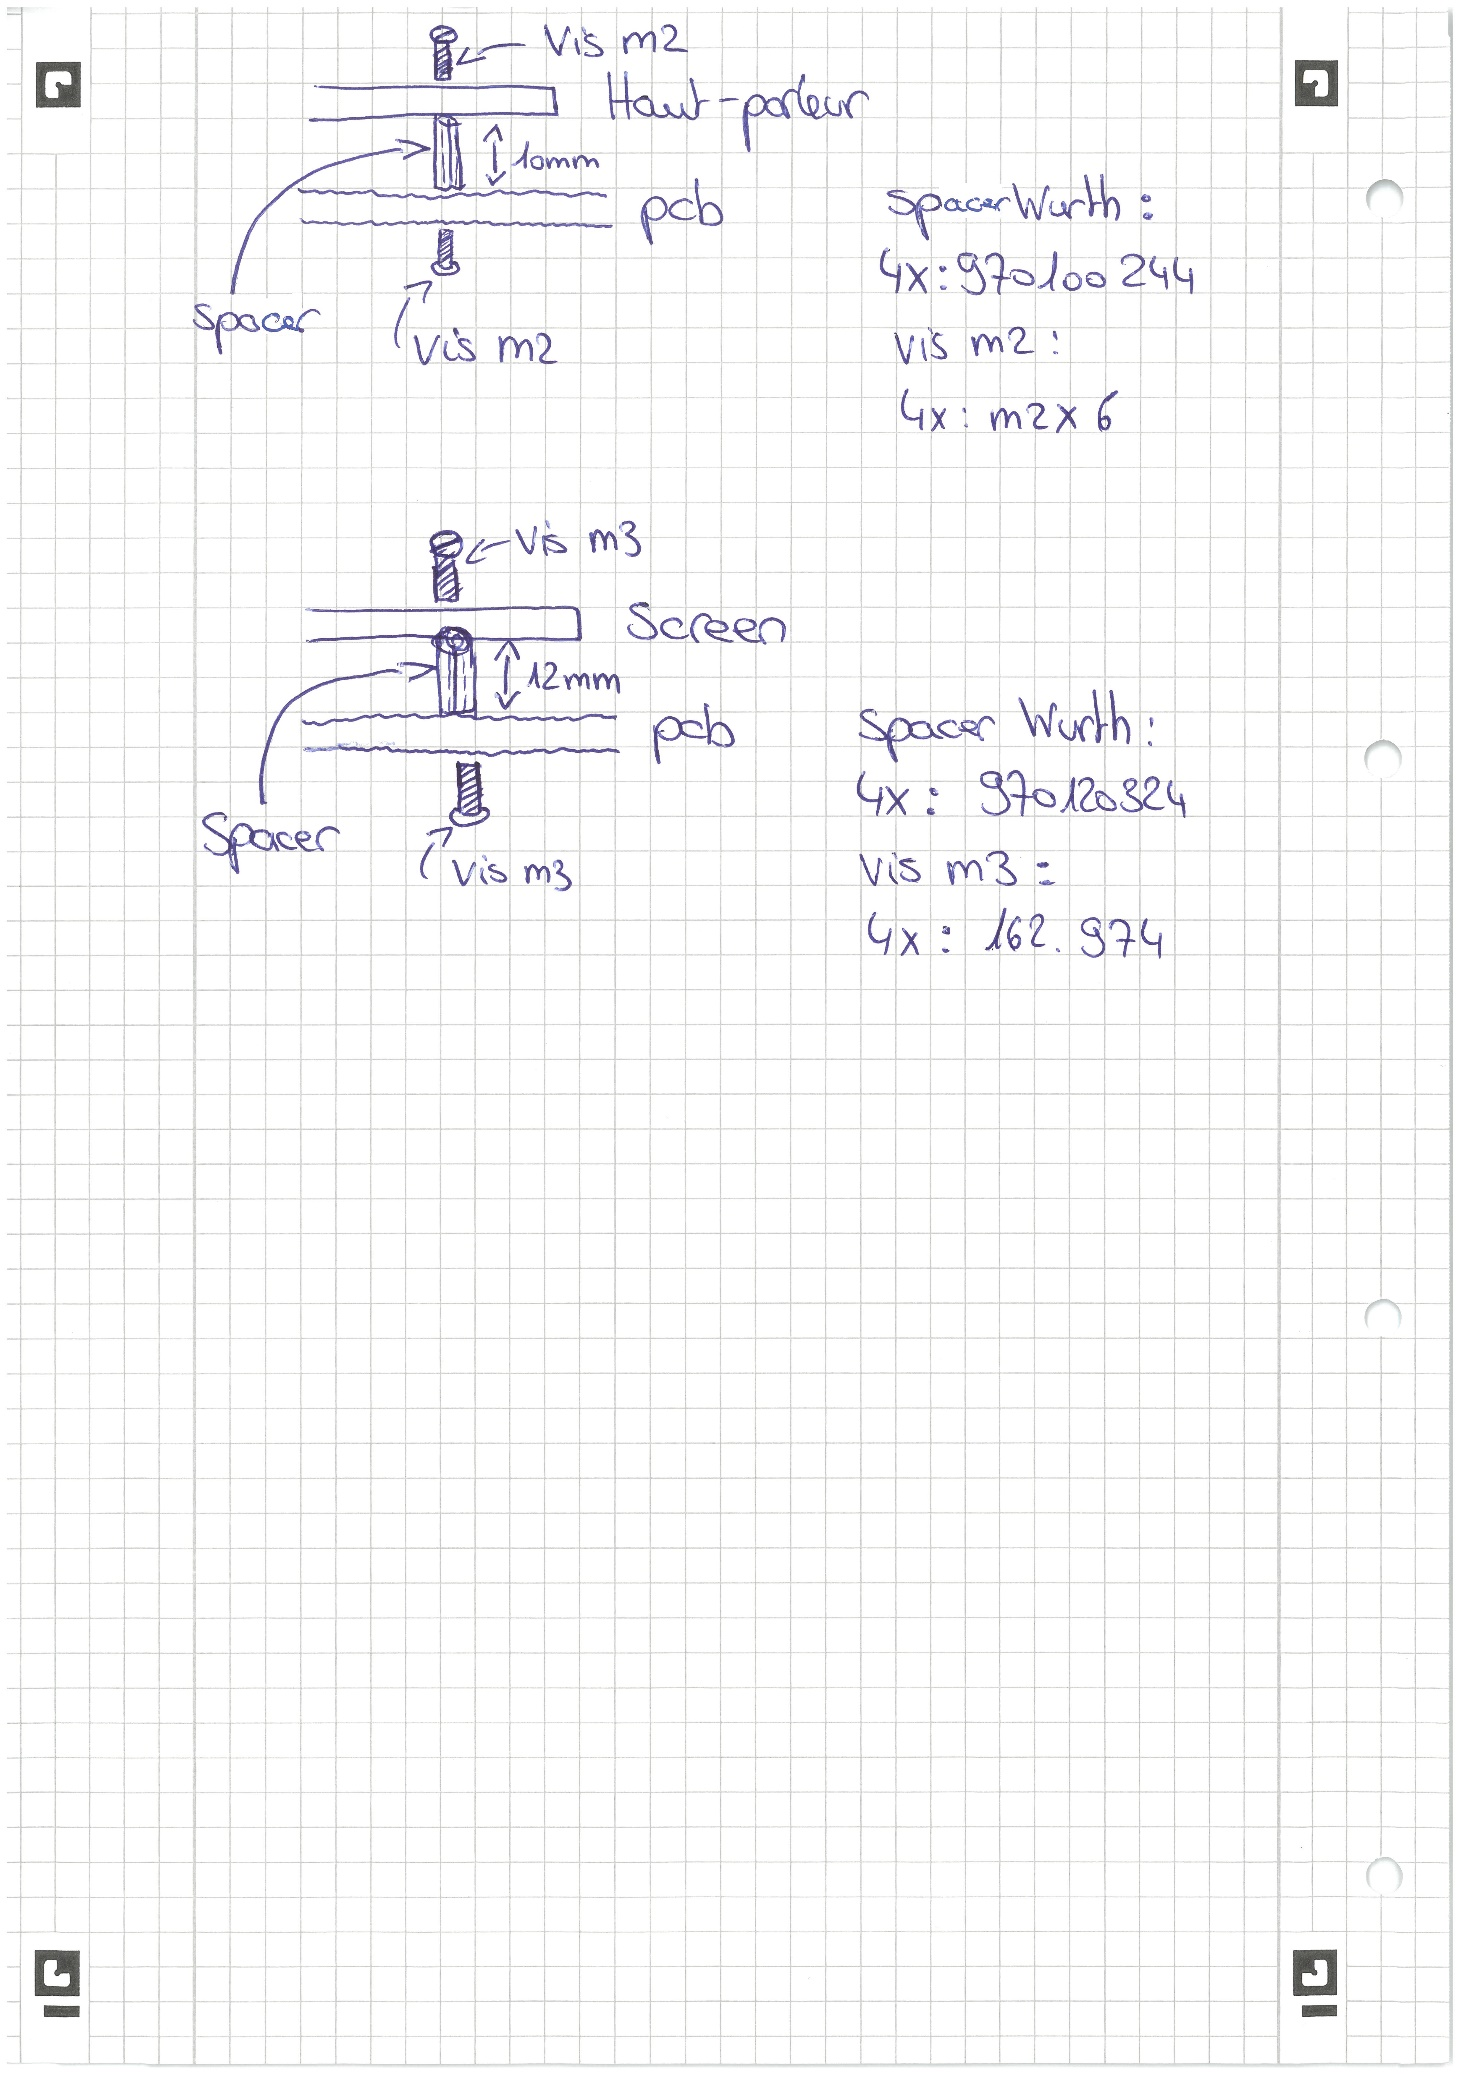 Vis m2
Haut-parleur
10mm
pcb
Spacer
Vis m2
Spacer Wurth :
4x : 970100 244
Vis m2 :
4x : m2x6
Vis m3
Screen
12mm
pcb
Spacer
Vis m3
Spacer Wurth :
4x : 970120324
Vis m3 :
4x : 162.974